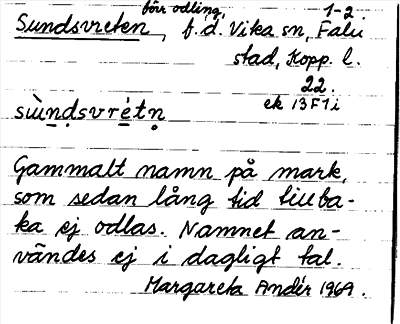 förr odling, 1-2.
Sundsvreten, f.d. Vika sn, Falu
stad, Kopp. l.
22.
ek 13F1i
sùndsvrétn
Gammalt namn på mark,
som sedan lång tid tillba-
ka ej odlas. Namnet an-
vändes ej i dagligt tal.
Margareta Andér 1969.